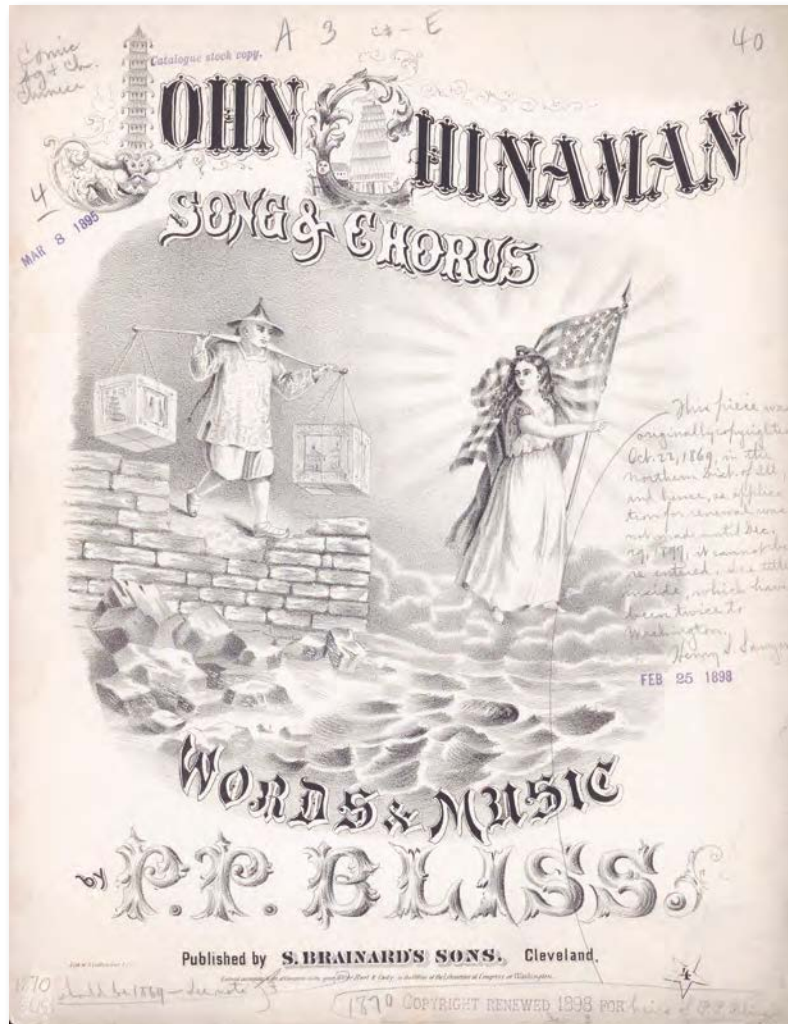 A 3 E
40
Comic
Chinese
Catalogue stock copy.
JOHN CHINAMAN
4
MAR 8 1895
SONG & CHORUS
This piece was
originally copyrighted
Oct. 22, 1869, in the
Northern Dist. of Ill.,
and hence, as applica
tion for renewal was
not made until Dec.
29, 1897, it cannot be
re entered. See title
inside, which have
been twice to
Washington.
Henry S. Sawyer
FEB 25 1898
WORDS & MUSIC
by P. P. BLISS.
Published by S. BRAINARD'S SONS. Cleveland.
4
1870
should be 1869 - See note
1870 COPYRIGHT RENEWED 1898 FOR